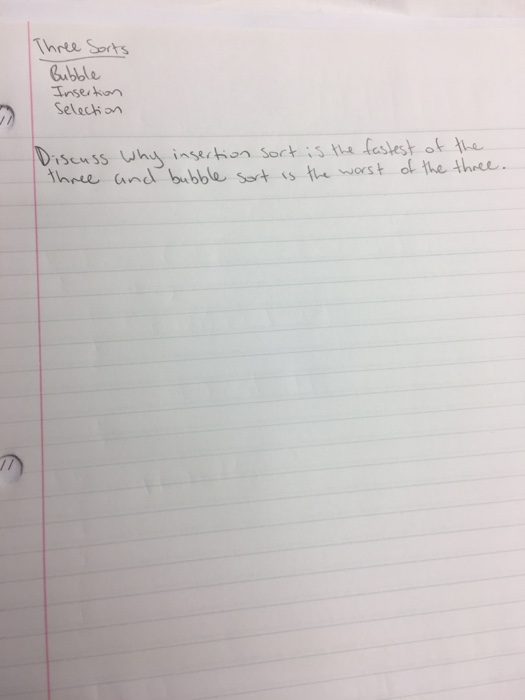 Three Sorts
Bubble
Insertion
Selection
Discuss why insertion sort is the fastest of the
three and bubble sort is the worst of the three.